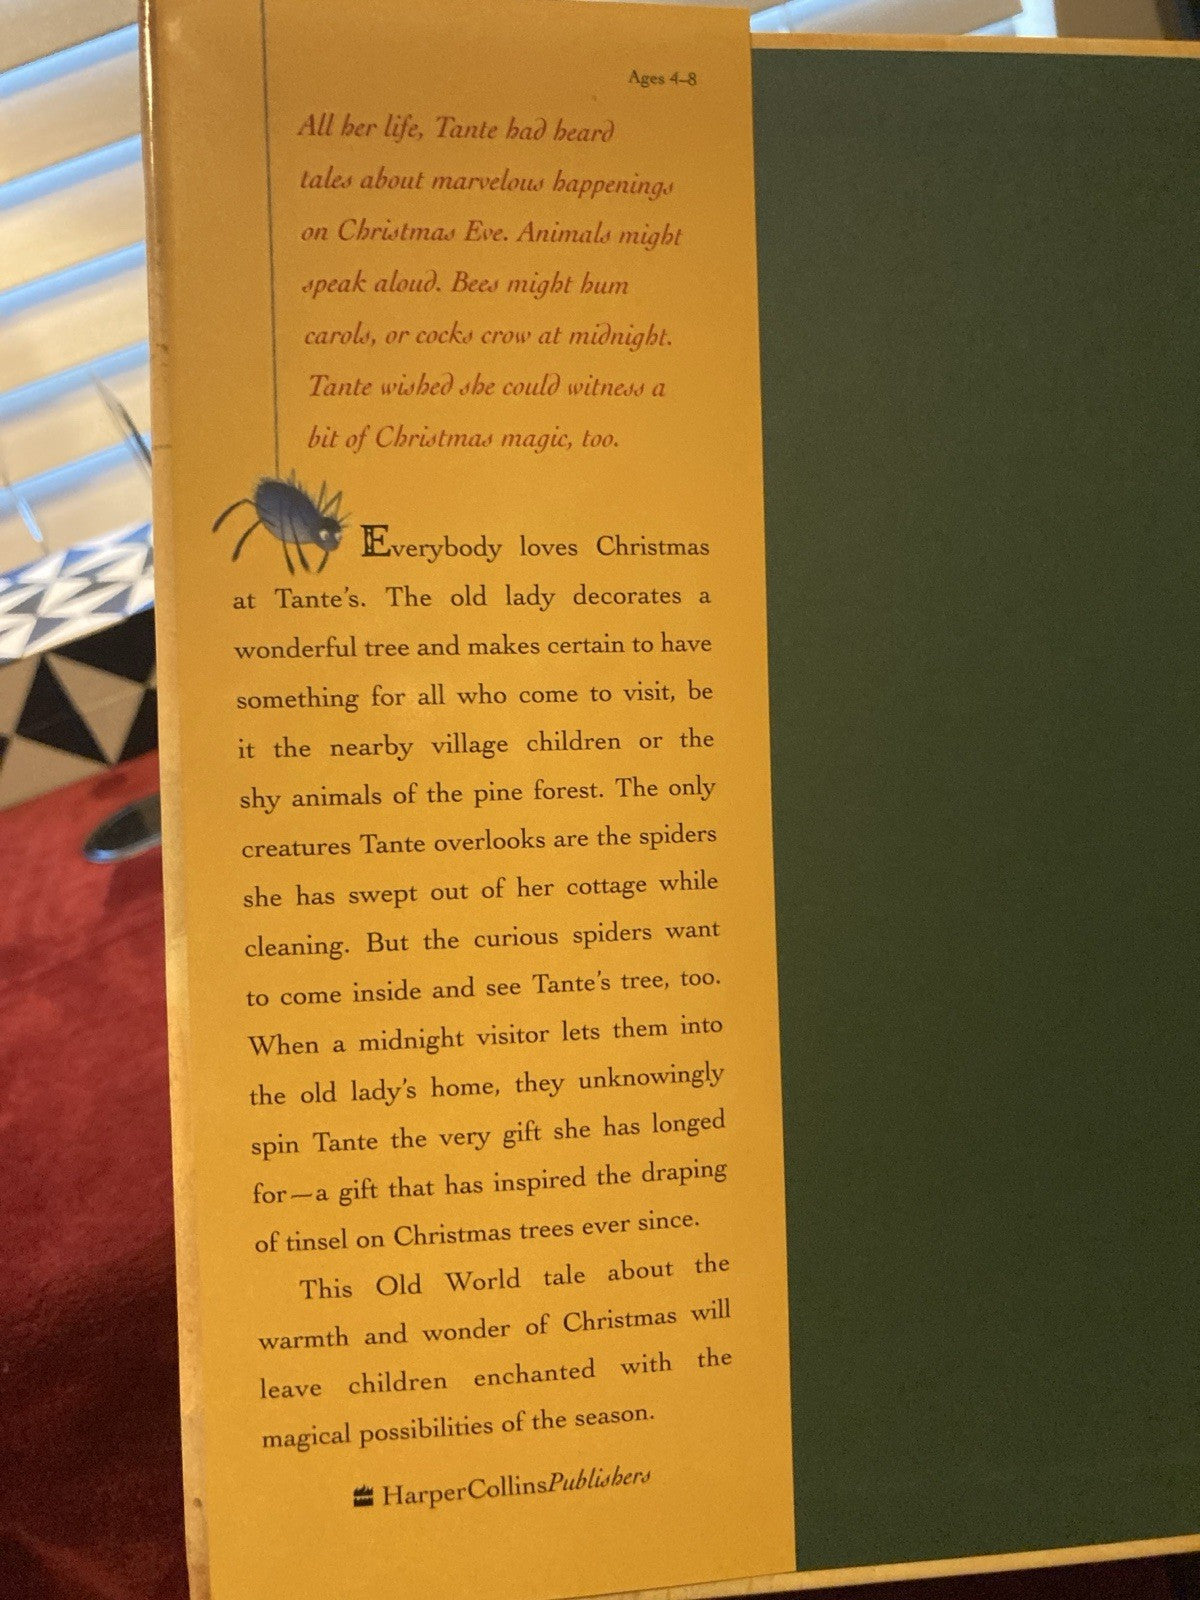 Ages 4–8
All her life, Tante had heard
tales about marvelous happenings
on Christmas Eve. Animals might
speak aloud. Bees might hum
carols, or cocks crow at midnight.
Tante wished she could witness a
bit of Christmas magic, too.
Everybody loves Christmas
at Tante’s. The old lady decorates a
wonderful tree and makes certain to have
something for all who come to visit, be
it the nearby village children or the
shy animals of the pine forest. The only
creatures Tante overlooks are the spiders
she has swept out of her cottage while
cleaning. But the curious spiders want
to come inside and see Tante’s tree, too.
When a midnight visitor lets them into
the old lady’s home, they unknowingly
spin Tante the very gift she has longed
for—a gift that has inspired the draping
of tinsel on Christmas trees ever since.
This Old World tale about the
warmth and wonder of Christmas will
leave children enchanted with the
magical possibilities of the season.
HarperCollinsPublishers